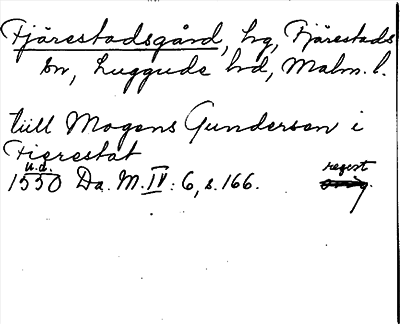 Fjärestadsgård, hg, Fjärestads
sn, Luggude hd, Malm. l.
tiill Mogens Gunderson i
Fierestat
u.d. regest
1550 Da. M. IV: 6, s. 166. orig.